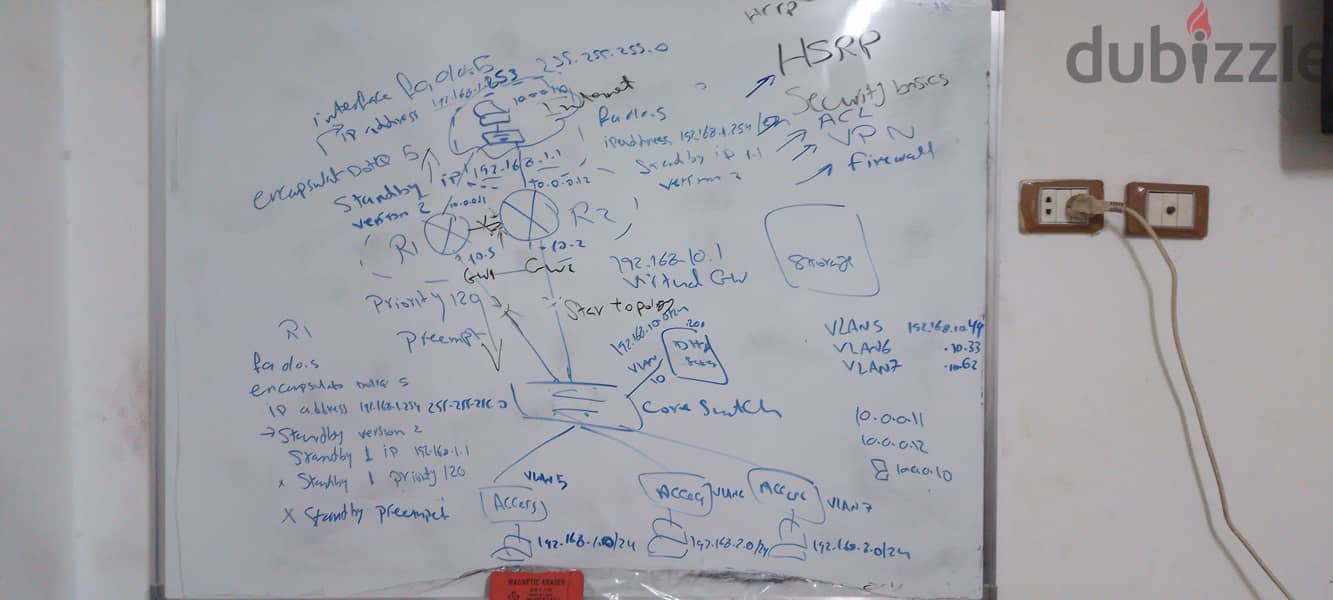 HSRP
Security basics
ACL
VPN
firewall
dubizzle
interface fa0/0.5
255.255.255.0
ip address 192.168.1.253
Internet
fa0/0.5
ip address 192.168.1.254
Standby ip 1.1
version 2
encapsulat Dot1Q 5
Standby ip 192.168.1.1
version 2
10.0.0.11
10.0.0.12
R1
R2
10.2
GW1
GW2
192.168.10.1
Virtual GW
Storage
Priority 120
preempt
Star topology
192.168.10.0/24
.200
VLAN
10
Core Switch
VLAN5
VLAN6
VLAN7
.10.33
R1
fa0/0.5
ip address 192.168.1.254 255.255.255.0
→ Standby version 2
Standby 1 ip 192.168.1.1
x Standby 1 priority 120
x Standby preempt
10.0.0.11
10.0.0.12
VLAN5
Access
Access
Access
VLAN7
192.168.2.0/24
192.168.2.0/24
MAGNETIC ERASER